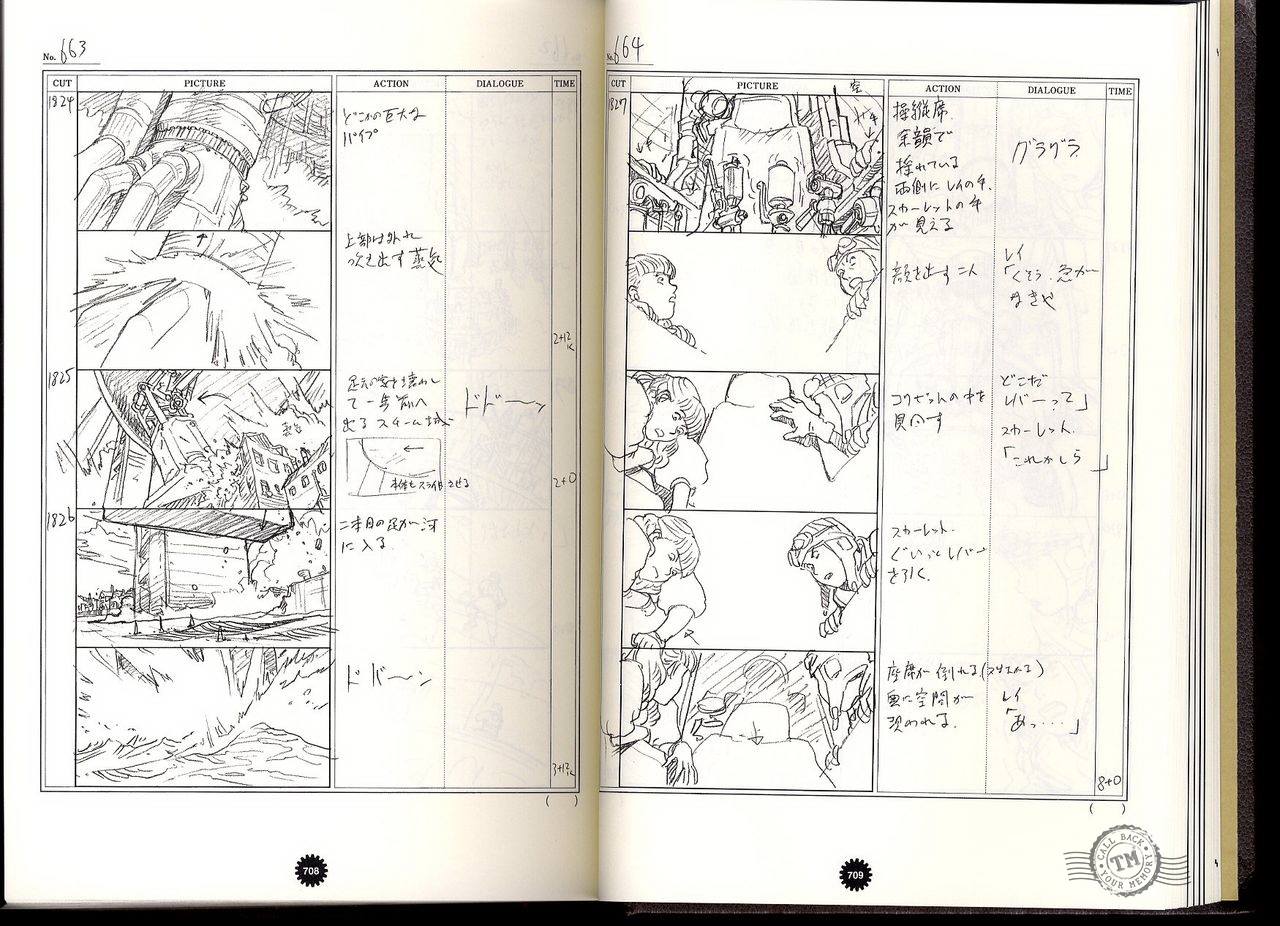 No. 663
CUT PICTURE ACTION DIALOGUE TIME
1824
巨大な
パイプ
上部は外れ
吹き出す蒸気
2+12
1825
て一歩前へ
出るスチーム城
ドドーッ
本体もスライドさせる
2+0
1826
二本目の足が河
に入る
ドバーン
3+12
708
No. 664
CUT PICTURE ACTION DIALOGUE TIME
1827
操縦席
余韻で
揺れている
両側にレイの手、
スカーレットの手
が見える
グラグラ
顔を出す二人
レイ
「くそう、急が
なきゃ
の中を
どこだ
レバーって」
スカーレット
「これかしら」
スカーレット
ぐいっとレバー
を引く
座席が倒れる
奥に空間が
現われる
レイ
「あっ····」
8+0
709
CALL BACK
TM
YOUR MEMORY